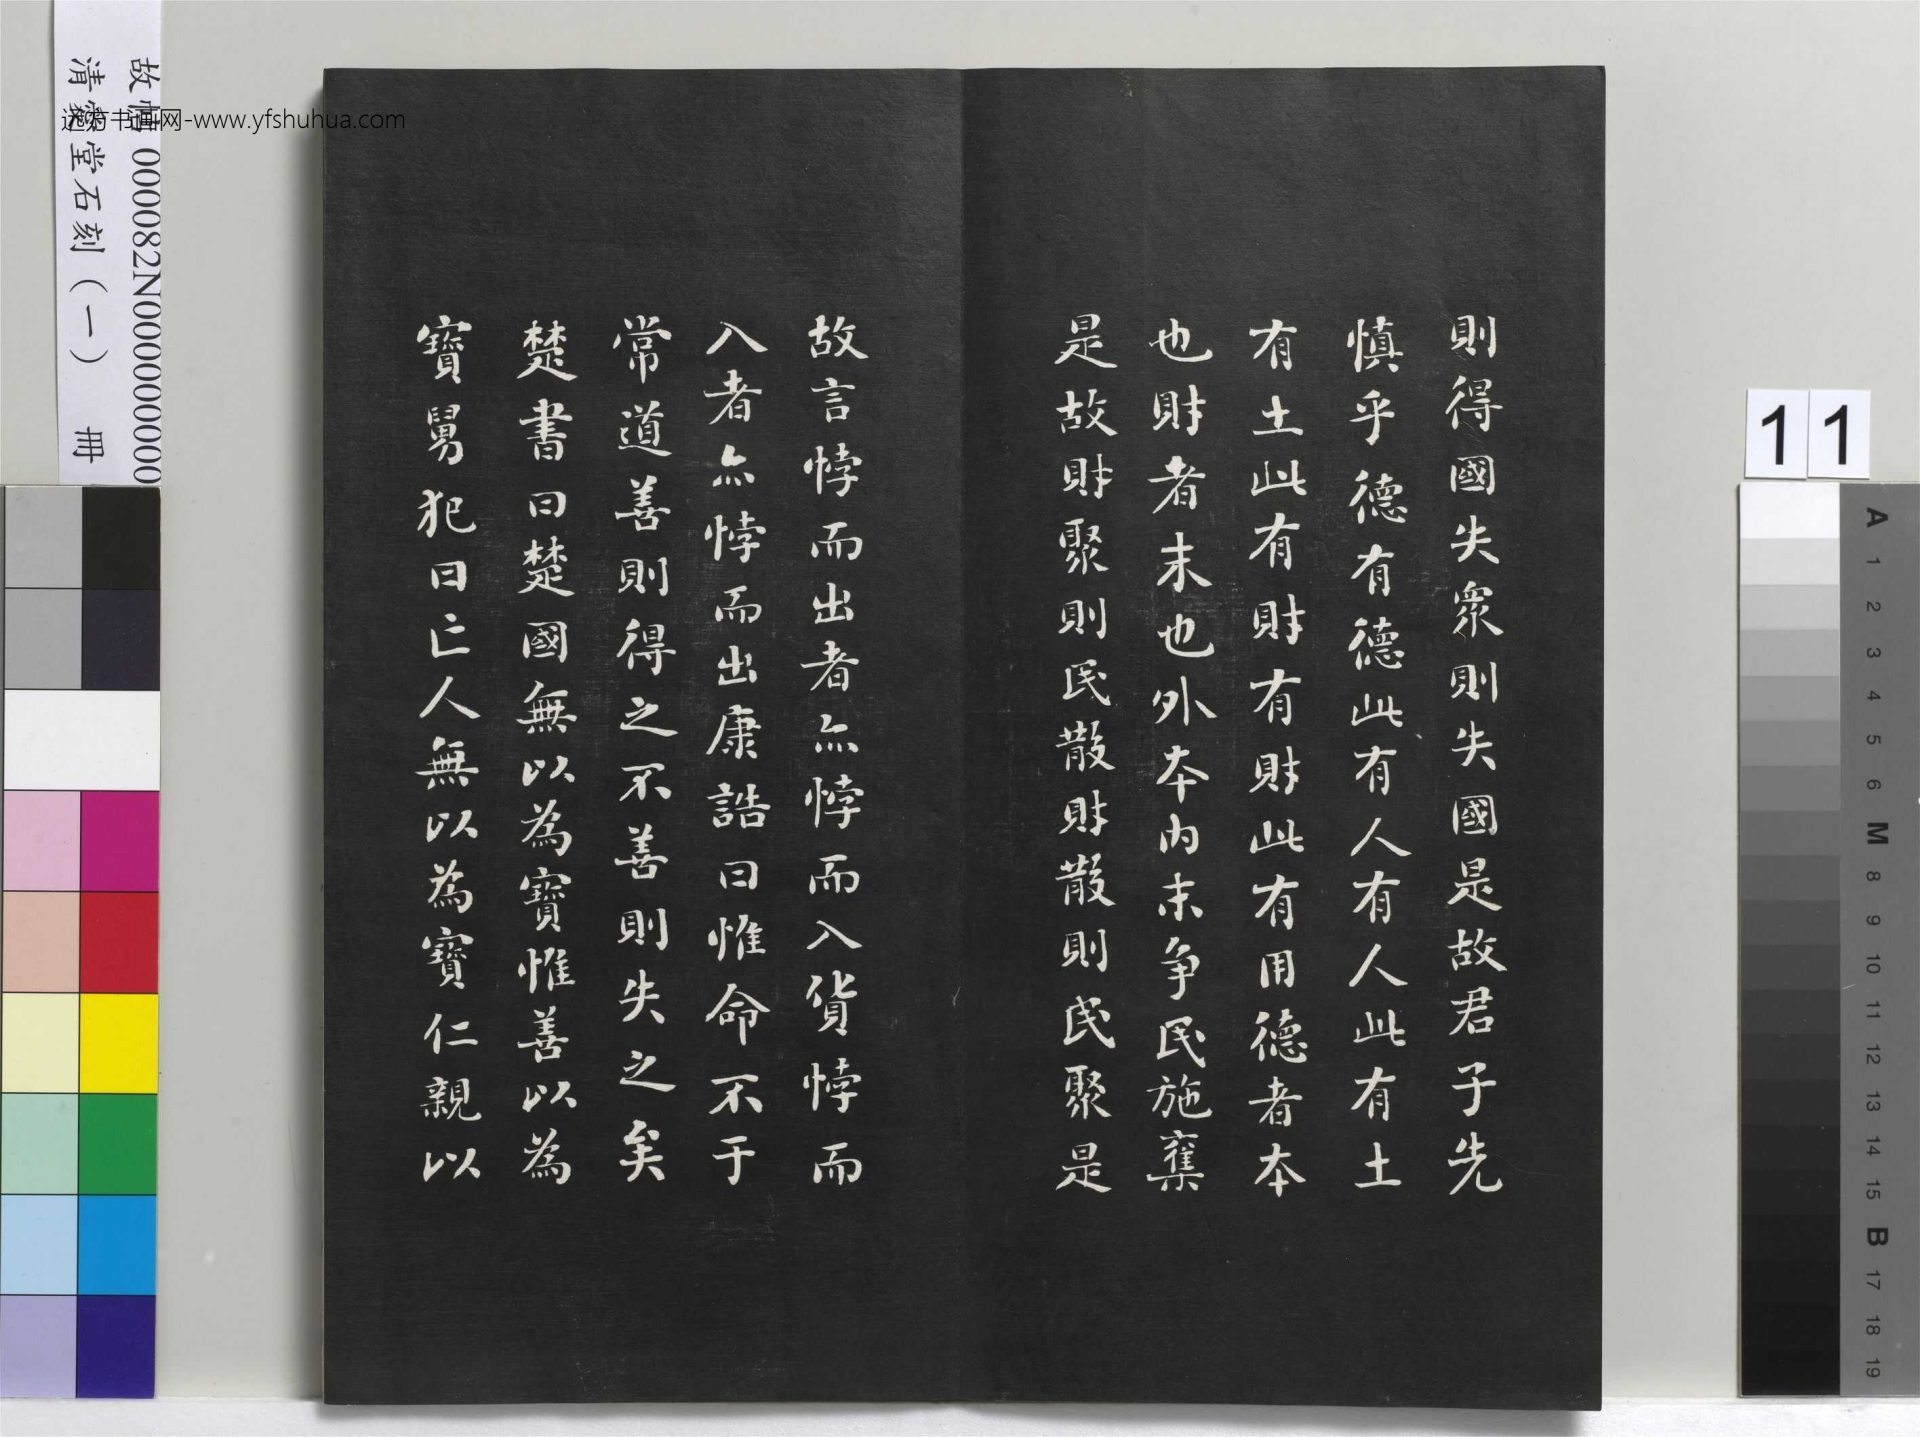 則得國失衆則失國是故君子先
慎乎德有德此有人有人此有土
有土此有財有財此有用德者本
也財者末也外本內末争民施奪
是故財聚則民散財散則民聚是
故言悖而出者亦悖而入貨悖而
入者亦悖而出康誥曰惟命不于
常道善則得之不善則失之矣
楚書曰楚國無以為寶惟善以為
寶舅犯曰亡人無以為寶仁親以
故帖 000082N000000000
石刻(一) 冊
书画网-www.yfshuhua.com
11
A
1
2
3
4
5
6
M
8
9
10
11
12
13
14
15
B
17
18
19